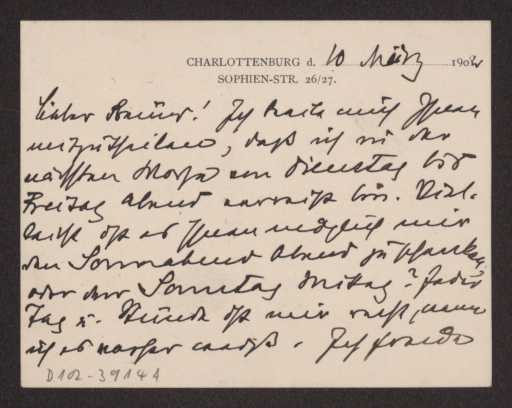 CHARLOTTENBURG d. 10 März 1902
SOPHIEN-STR. 26/27.
Lieber Reimer! Ich beeile mich Ihnen
mitzutheilen, daß ich in der
nächsten Woche von Dienstag bis
Freitag Abend verreist bin. Viel-
leicht ist es Ihnen möglich mir
den Sonnabend Abend zu schenken
oder den Sonntag Mittag? Jeder
Tag u. Stunde ist mir recht, wenn
ich es vorher weiß. Ich freue
D102-3914A